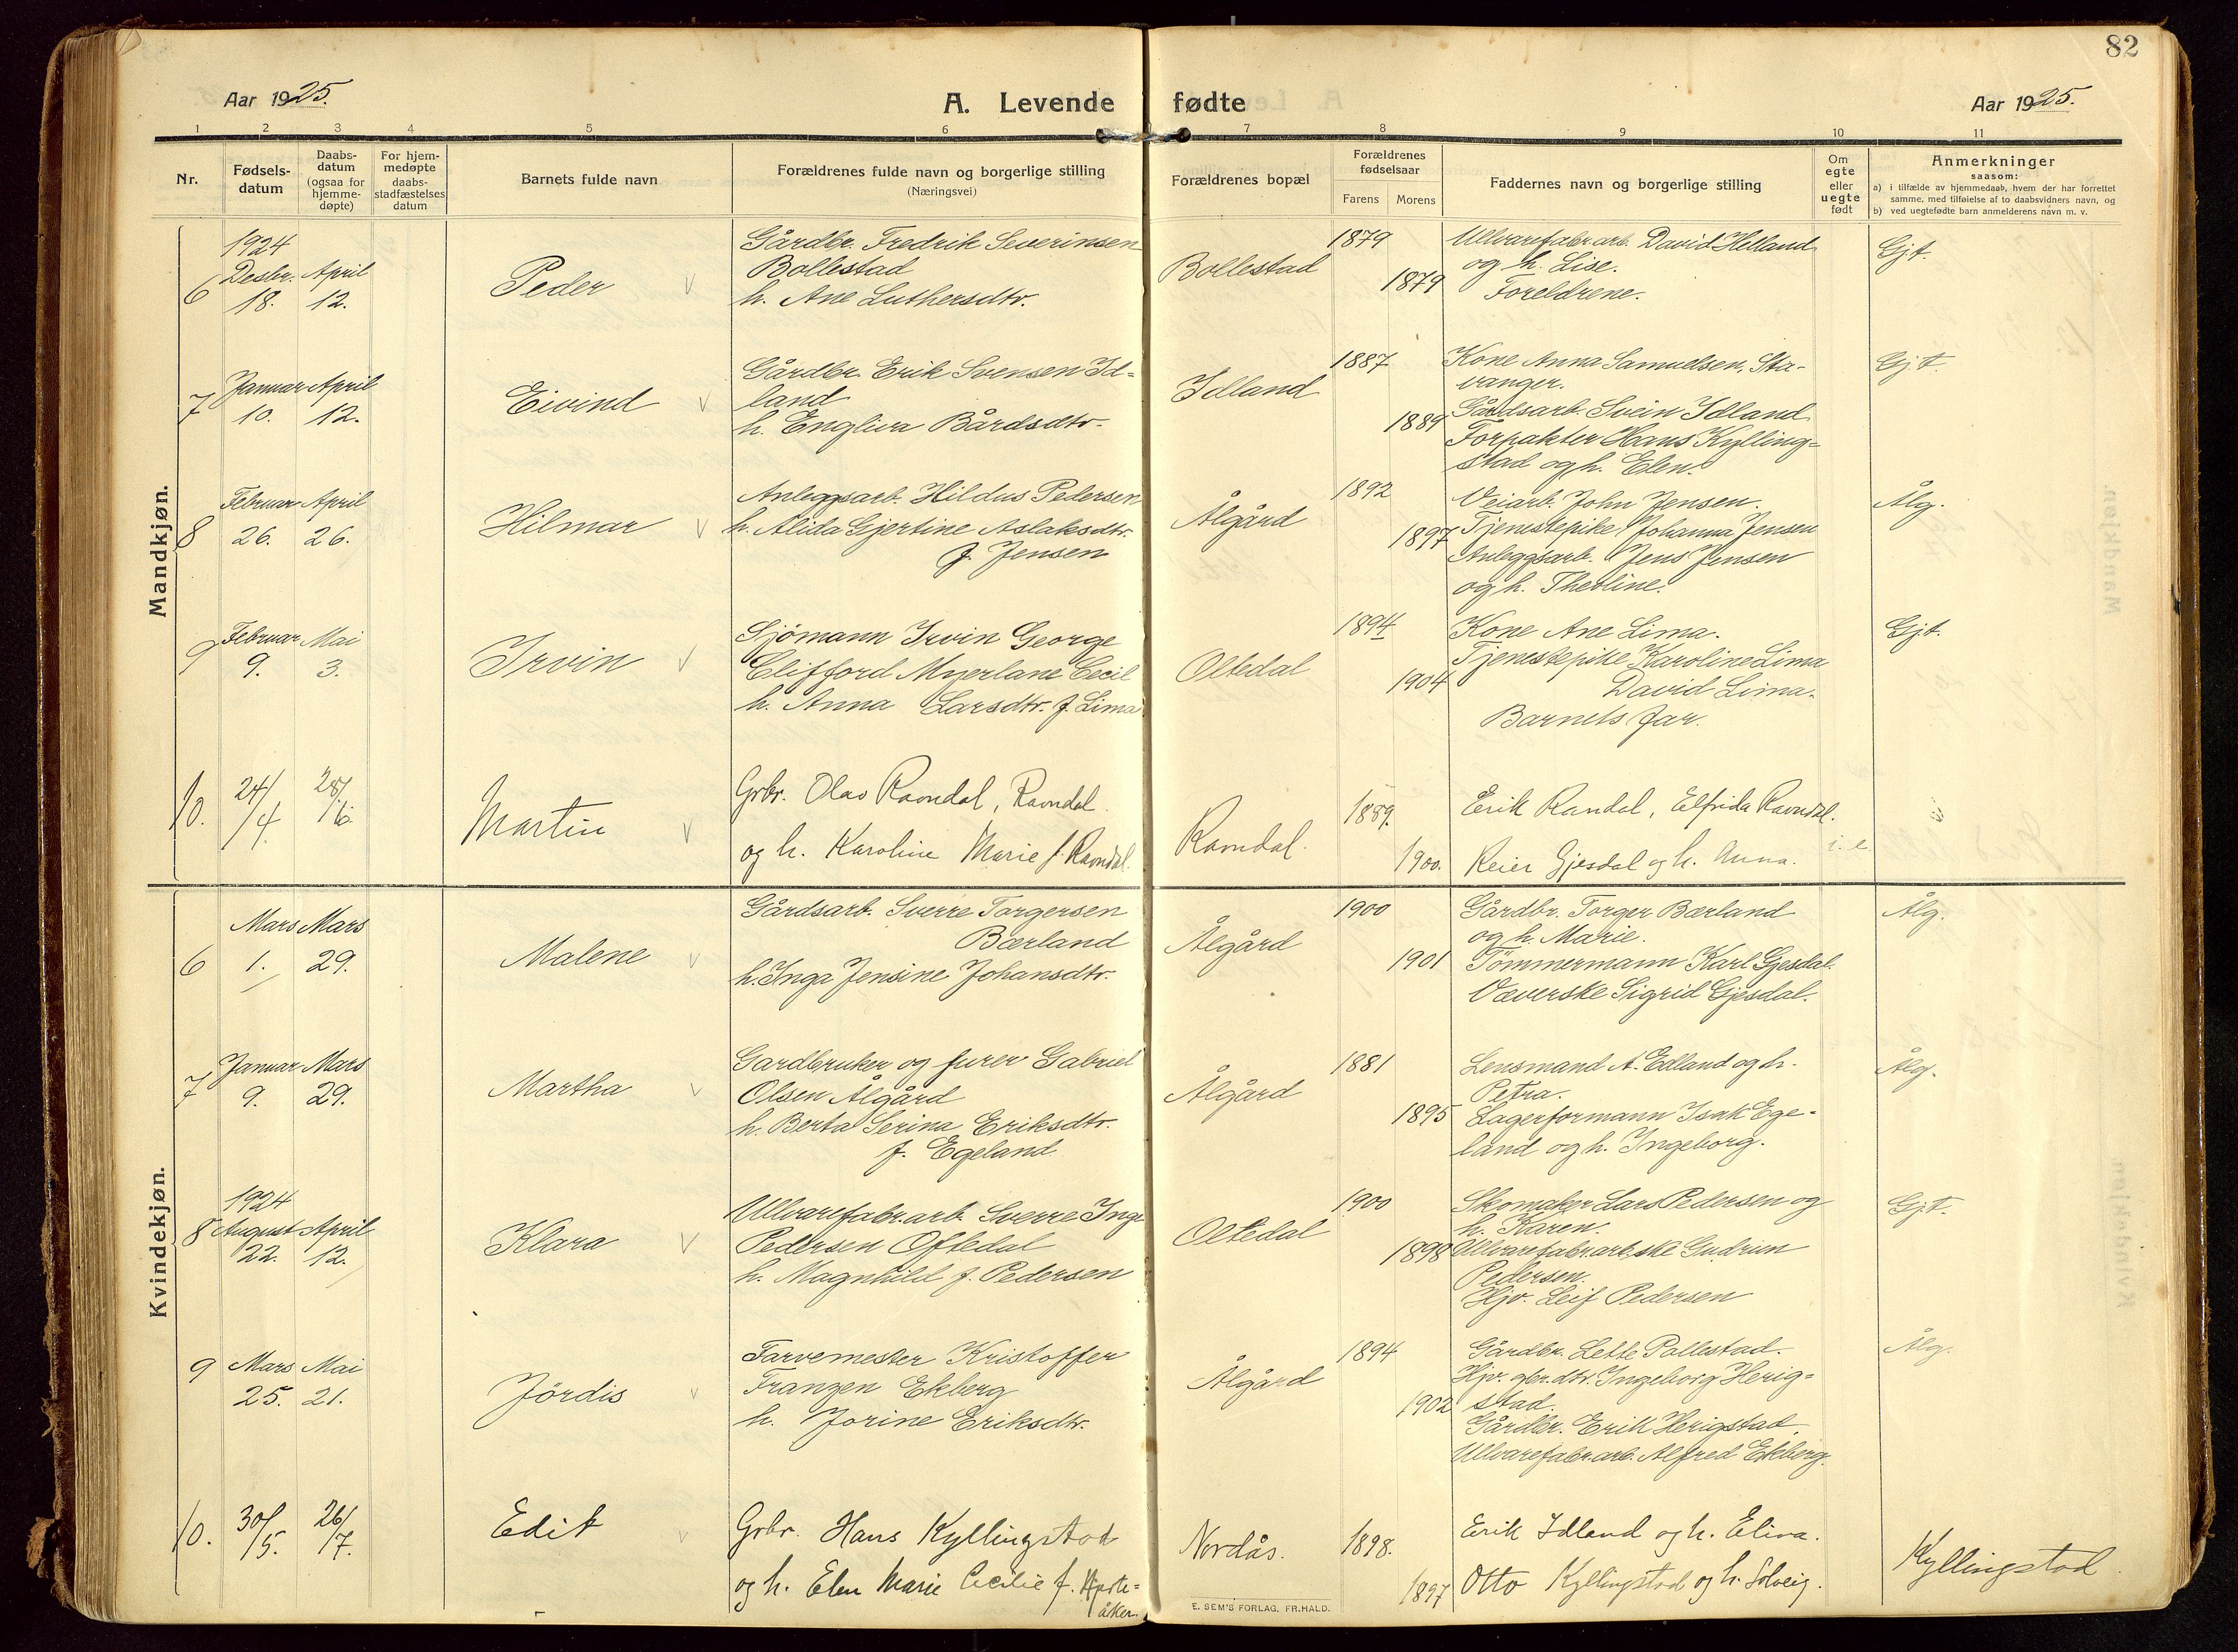 82
Aar 1925.
A. Levende fødte
Aar 1925.
1 2 3 4 5 6 7 8 9 10 11
Nr.
Fødsels-
datum
Daabs-
datum
(ogsaa for
hjemme-
døpte)
For hjem-
medøpte
daabs-
stadfæstelses
datum
Barnets fulde navn
Forældrenes fulde navn og borgerlige stilling
(Næringsvei)
Forældrenes bopæl
Forældrenes
fødselsaar
Farens Morens
Faddernes navn og borgerlige stilling
Om
egte
eller
uegte
født
Anmerkninger
saasom:
a) i tilfælde av hjemmedaab, hvem der har forrettet
samme, med tilføielse af to daabsvidners navn, og
b) ved uegtefødte barn anmelderens navn m. v.
Mandkjøn.
6
1924
Desbr.
18.
April
12.
Peder
Gårdbr. Fredrik Severinsen
Bollestad
h. Ane Luthersdtr.
Bollestad
1879
1879
Ullvarefabr.arb. David Helland
og h. Lise.
Foreldrene.
Gjt.
7
Januar
10.
April
12.
Eivind
Gårdbr. Erik Svensen Id-
land
h. Engliva Bårdsdtr.
Idland
1887
1889
Kone Anna Samuelsen, Sta-
vanger.
Gårdsarb. Svein Idland
Forpakter Hans Kylling-
stad og h. Elen.
Gjt.
8
Februar
26.
April
26.
Hilmar
Anleggsarb. Hildus Pedersen
h. Alida Gjertine Aslaksdtr.
f. Jensen
Ålgård
1892
1897
Veiarb. John Jensen.
Tjenestepike Johanna Jensen
Anleggsarb. Jens Jensen
og h. Theoline.
Ålg.
9
Februar
9.
Mai
3.
Irvin
Sjömann Irvin George
Clifford Myerlane Cecil
h. Anna Larsdtr. f. Lima
Oltedal
1894
1904
Kone Ane Lima.
Tjenestepike Karoline Lima
David Lima.
Barnets far.
Gjt.
10.
24/
/4.
28/
/6.
Martin
Grbr. Olav Ravndal, Ravndal.
og h. Karoline Marie f. Ravndal.
Ravndal.
1889.
1900.
Erik Ravndal, Elfrida Ravndal.
Reier Gjesdal og h. Anna.
Kvindekjøn.
6
Mars
1.
Mars
29.
Malene
Gårdsarb. Sverre Torgersen
Bærland
h. Inga Jensine Johansdtr.
Ålgård
1900
1901
Gårdbr. Torger Bærland
og h. Marie.
Tømmermann Karl Gjesdal.
Væverske Sigrid Gjesdal.
Ålg.
7
Januar
9.
Mars
29.
Martha
Gardbruker og furer Gabriel
Olsen Ålgård
h. Berta Serina Eriksdtr.
f. Egeland
Ålgård
1881
1895
Lensmand A. Edland og h.
Petra.
Lagerformann Isak Ege-
land og h. Ingeborg.
Ålg.
8
1924
August
22.
April
12.
Klara
Ullvarefabr.arb. Sverre Inge
Pedersen Oftedal
h. Magnhild f. Pedersen
Oltedal
1900
1898
Skomaker Lars Pedersen og
h. Karen.
Ullvarefabr.arb.ske Gudrun
Pedersen.
Hjv. Leif Pedersen
Gjt.
9
Mars
25.
Mai
21.
Jördis
Farvemester Kristoffer
Franzen Ekberg
h. Jorine Eriksdtr.
Ålgård
1894
1902
Gårdbr. Pollestad.
Hjv. gbr.dtr. Ingeborg Herig-
stad.
Gårdbr. Erik Herigstad
Ullvarefabr.arb. Alfred Ekberg.
Ålg.
10.
30/
/5.
26/
/7.
Edit
Grbr. Hans Kyllingstad
og h. Elen Marie Cecilie f.
Nordås.
1898.
1897
Erik Idland og h. Eliva.
Otto Kyllingstad og h. Solveig.
Kyllingstad
E. SEM'S FORLAG, FR.HALD.